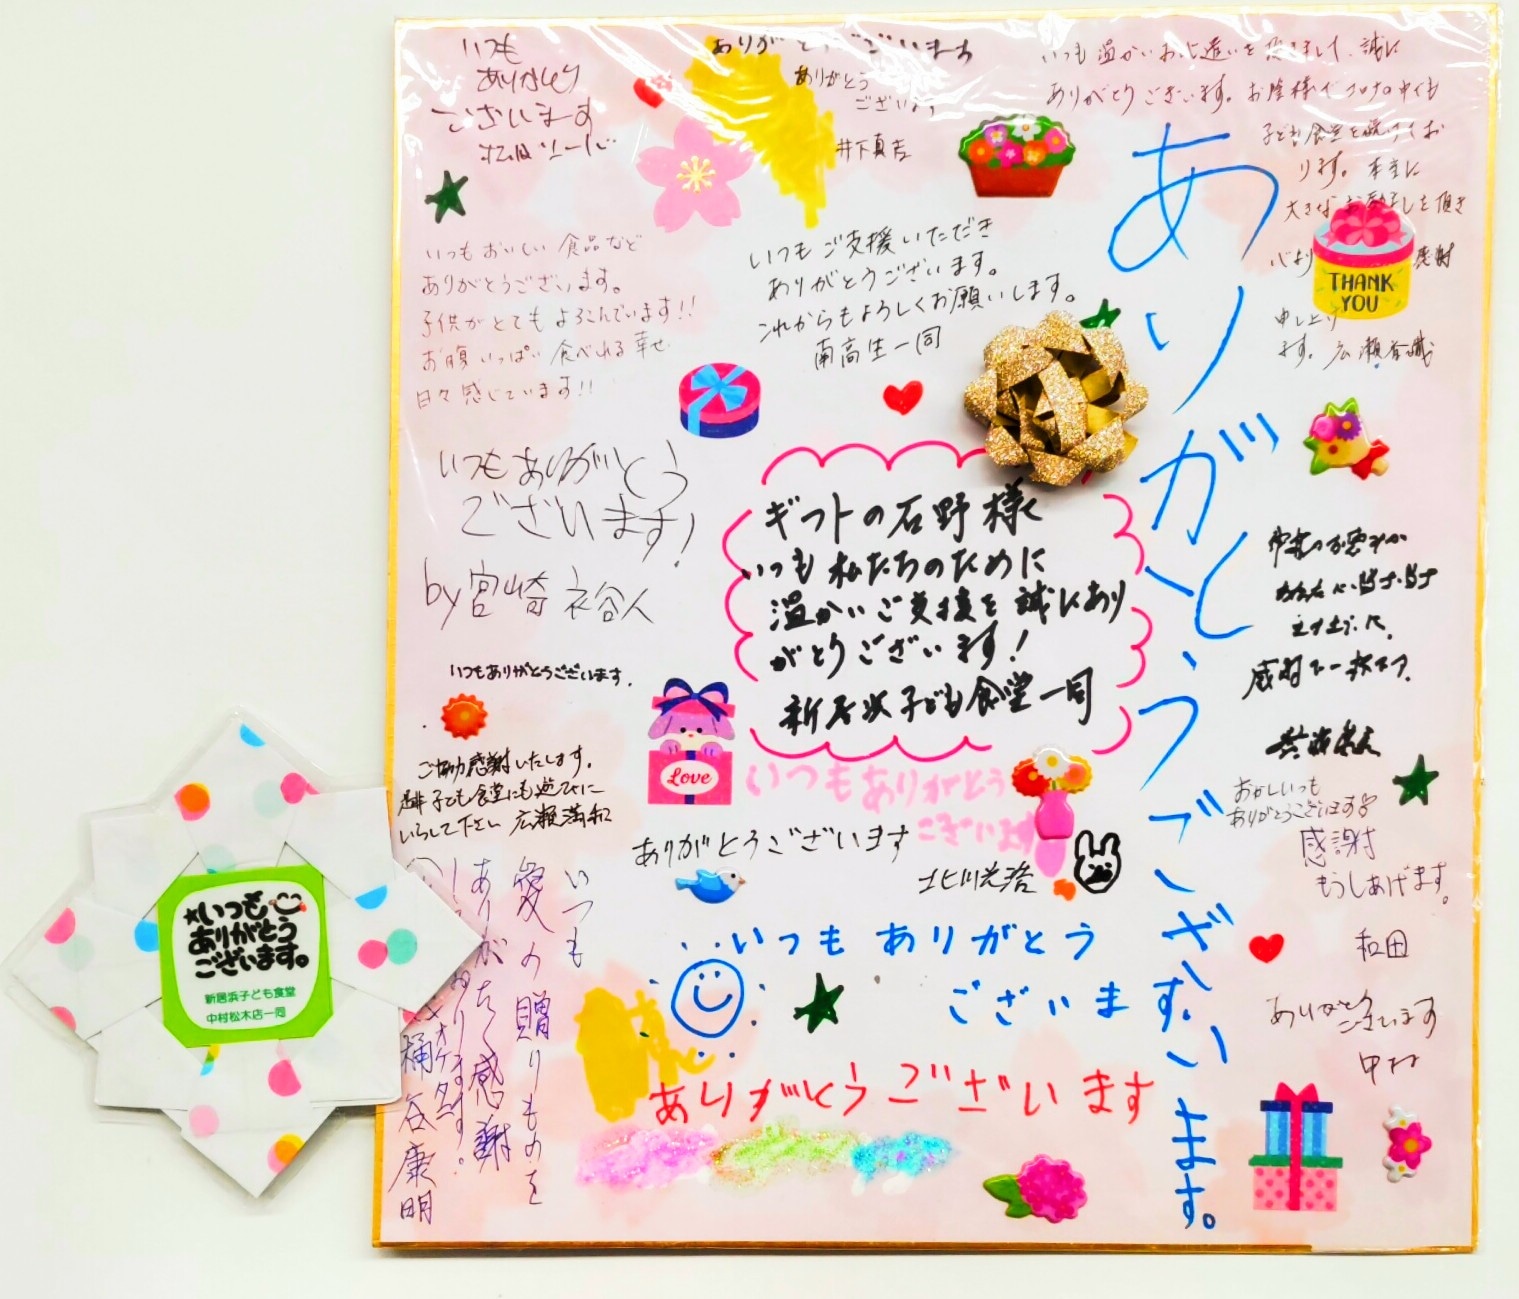 いつも
ありがとう
ございます
ありがとうございます
ありがとう
ございます
井下真吉
いつも温かいお心遣いを頂きまして、誠に
ありがとうございます。お陰様でコロナ中でも
子ども食堂を続けてお
ります。本当に
大きなお励ましを頂き
心より感謝
申し上げ
ます。広瀬
THANK
YOU
いつもおいしい食品など
ありがとうございます。
子供がとてもよろこんでいます!!
お腹いっぱい食べれる幸せ
日々感じています!!
いつもご支援いただき
ありがとうございます。
これからもよろしくお願いします。
南高生一同
ありがとうございます。
いつもありがとう
ございます!
by宮崎衣谷人
ギフトの石野様
いつも私たちのために
温かいご支援を誠にあり
がとうございます!
新居浜子ども食堂一同
いつもありがとうございます.
ご協力感謝いたします。
是非子ども食堂にも遊びに
いらして下さい 広瀬満和
Love
いつもありがとう
ございます
ありがとうございます
北川光浩
おかしいつも
ありがとうございます
感謝
もうしあげます。
和田
ありがとう
ございます
中村
いつもありがとう
ございます
ありがとうございます
いつも
愛の贈りものを
ありがたく感謝
しております.
桶谷康明
★いつも
ありがとう
ございます。
新居浜子ども食堂
中村松木店一同